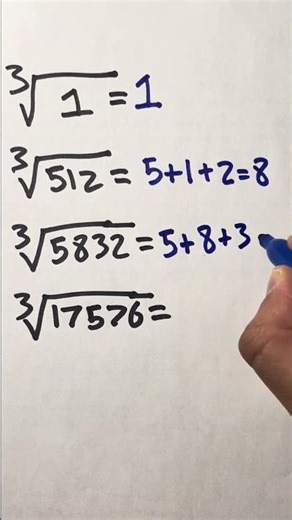 ∛1 = 1
∛512 = 5+1+2=8
∛5832 = 5+8+3
∛17576 =